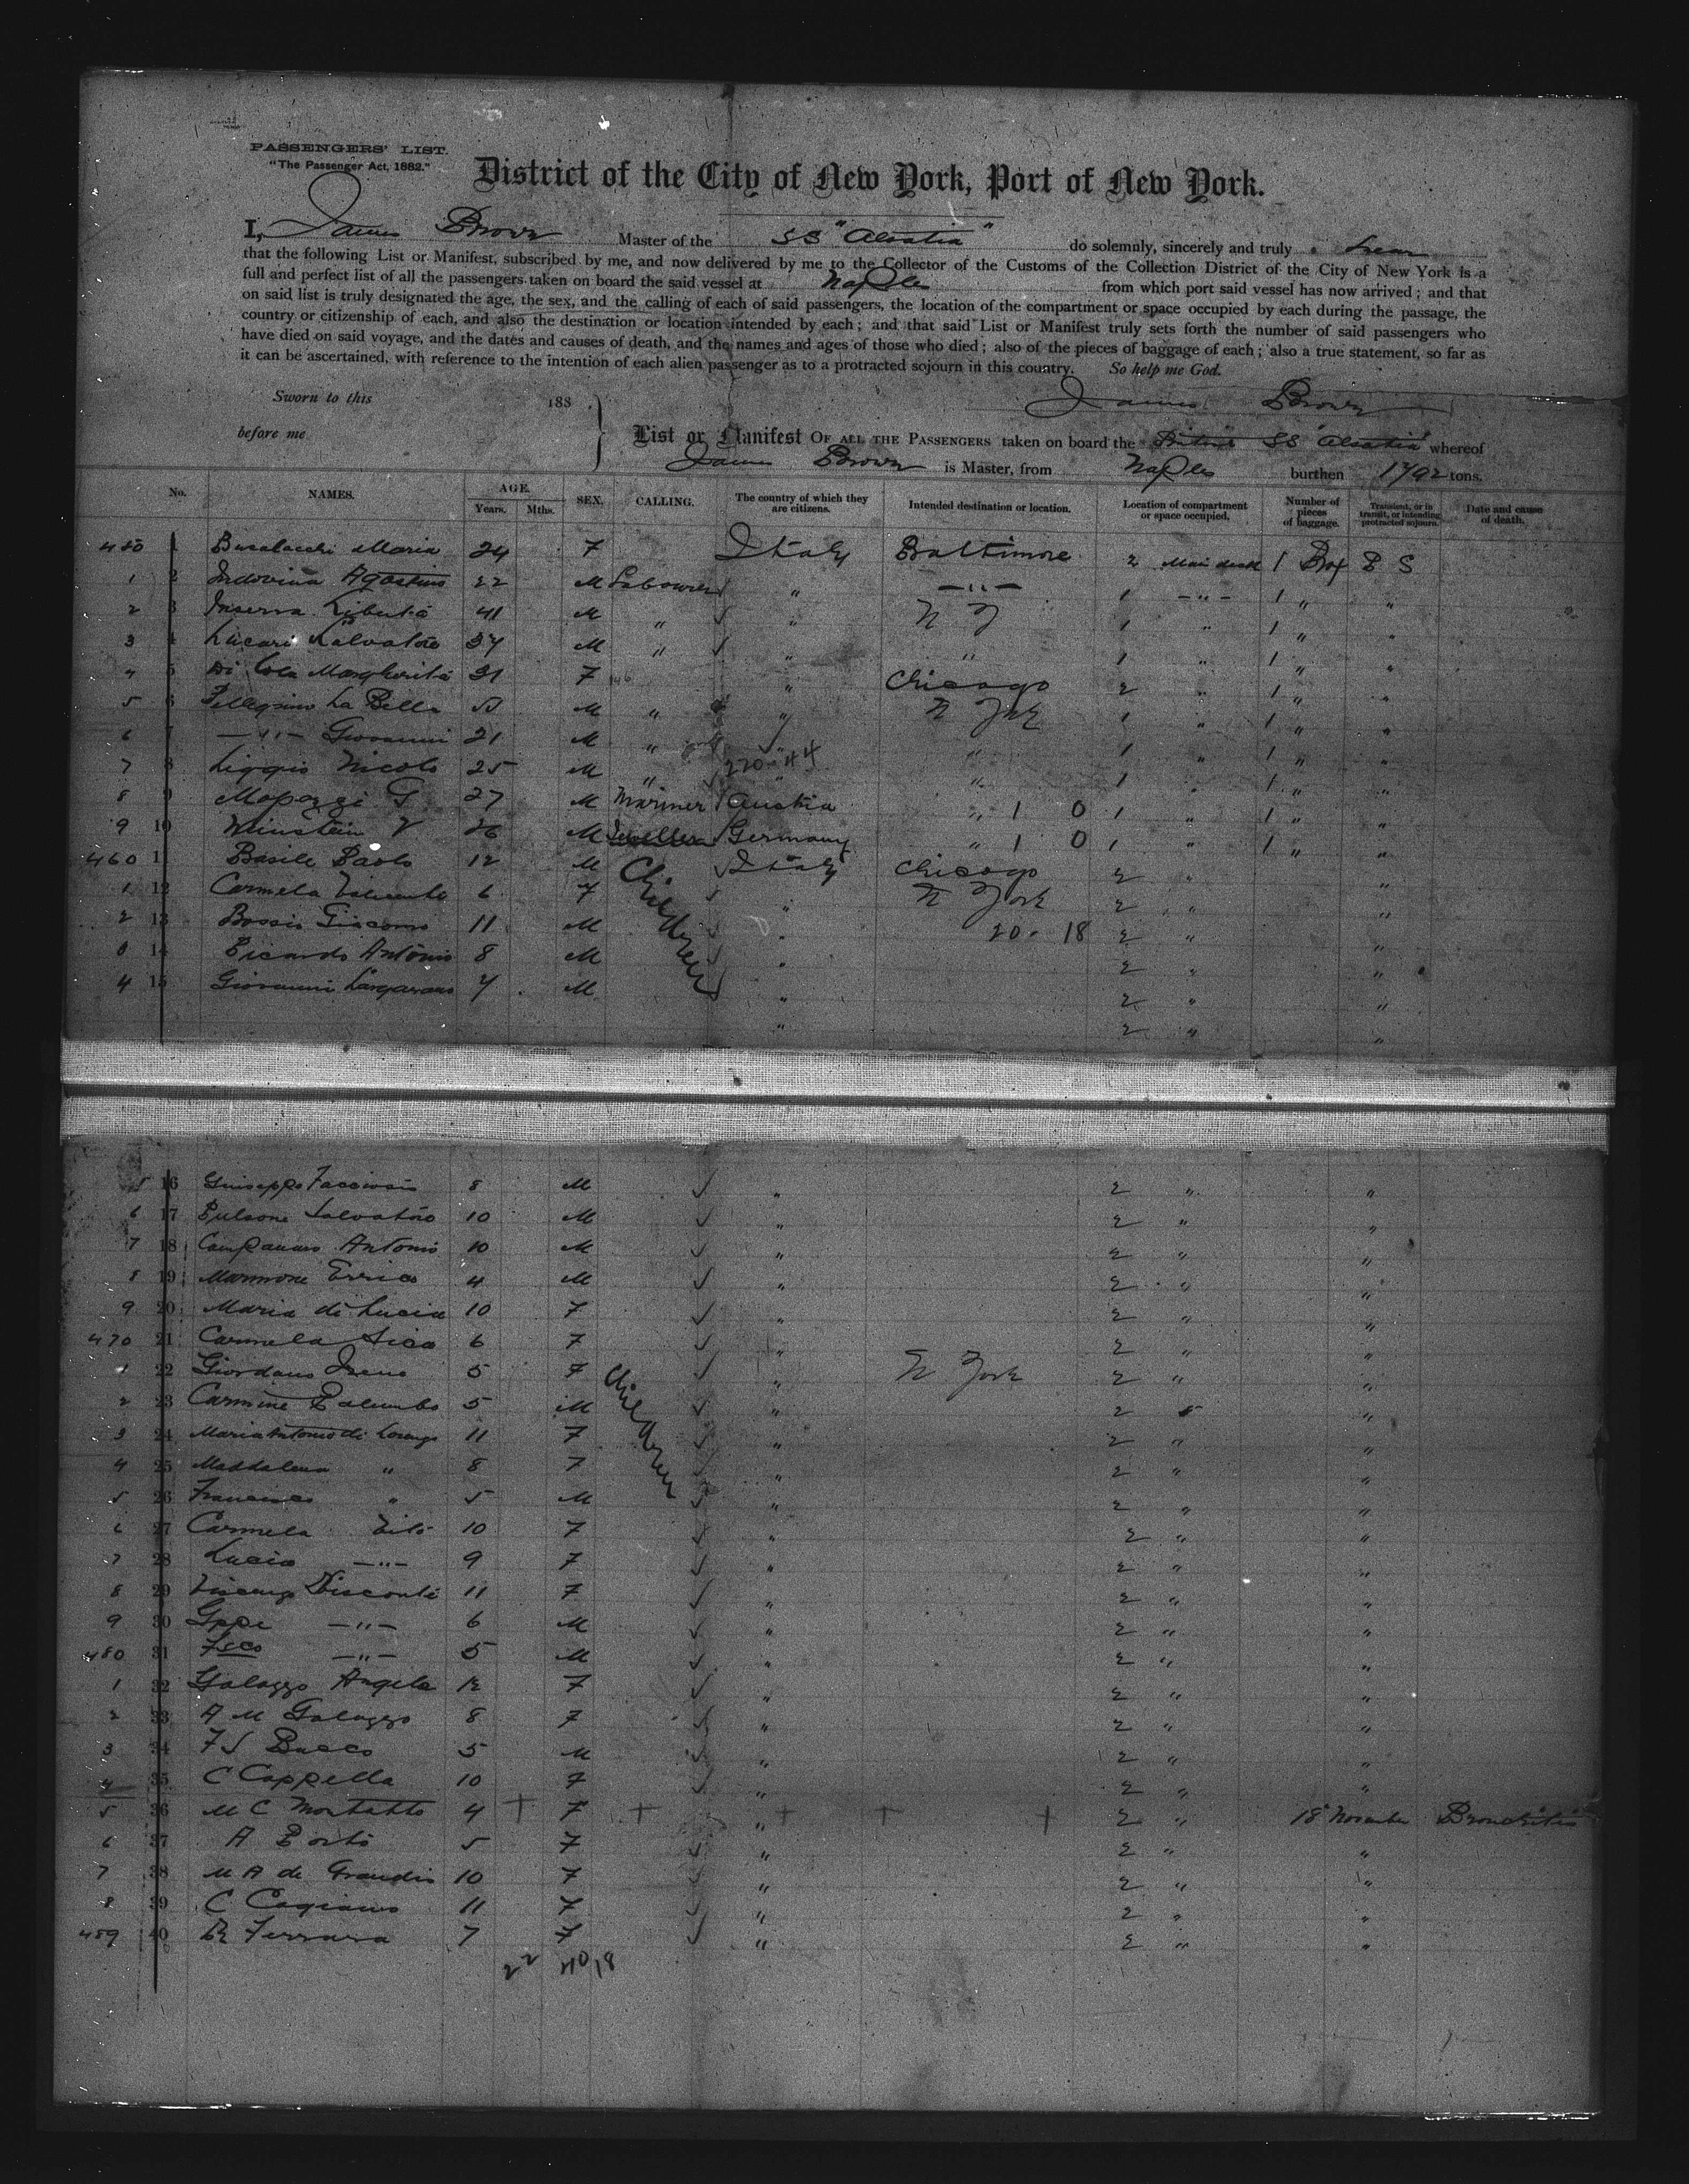 PASSENGERS' LIST.
"The Passenger Act, 1882."
District of the City of New York, Port of New York.
I, James Brown Master of the SS "Alsatia" do solemnly, sincerely and truly swear
that the following List or Manifest, subscribed by me, and now delivered by me to the Collector of the Customs of the Collection District of the City of New York is a
full and perfect list of all the passengers taken on board the said vessel at Naples from which port said vessel has now arrived; and that
on said list is truly designated the age, the sex, and the calling of each of said passengers, the location of the compartment or space occupied by each during the passage, the
country or citizenship of each, and also the destination or location intended by each; and that said List or Manifest truly sets forth the number of said passengers who
have died on said voyage, and the dates and causes of death, and the names and ages of those who died; also of the pieces of baggage of each; also a true statement, so far as
it can be ascertained, with reference to the intention of each alien passenger as to a protracted sojourn in this country. So help me God.
Sworn to this 188
James Brown
before me
List or Manifest OF ALL THE PASSENGERS taken on board the SS "Alsatia" whereof
James Brown is Master, from Naples burthen 1792 tons.
No. NAMES. AGE. Years. Mths. SEX. CALLING. The country of which they are citizens. Intended destination or location. Location of compartment or space occupied. Number of pieces of baggage. Transient, or in transit, or intending protracted sojourn. Date and cause of death.
450 1 Busalacchi Maria 24 F Italy Baltimore 2 Main deck 1 P S
1 2 Indovina Agostino 22 M Labourer " —"— 1 —"— 1 " "
2 3 Inserra Libertá 41 M " " N Y 1 " 1 " "
3 4 Salvatore 37 M " " " 1 " 1 " "
4 5 Di Cola Margherita 31 F " Chicago 2 " 1 " "
5 6 Pellegrino La Bella M " " N York 1 " 1 " "
6 7 —"— Giovanni 21 M " " " 1 " 1 " "
7 8 Liggio Nicolo 25 M " 270-44 " " 1 " 1 " "
8 9 G 27 M Mariner Austria " 1 0 1 " 1 " "
9 10 Winstein V 26 M Jeweller Germany " 1 0 1 " 1 " "
460 11 Basile Paolo 12 M Children Italy Chicago 2 " "
1 12 Carmela 6 F " N York 2 " "
2 13 Giacomo 11 M " 20-18 2 " "
14 Picardo Antonio 8 M " 2 " "
4 15 Giovanni 7 M " 2 " "
" 2 " "
5 16 8 M " 2 " "
6 17 Salvatore 10 M " 2 " "
7 18 Antonio 10 M " 2 " "
8 19 Errico 4 M " 2 " "
9 20 Maria di Lucia 10 F " 2 " "
470 21 Carmela Sica 6 F " 2 " "
1 22 Giordano Irene 5 F Children " N York 2 " "
2 23 Carmine Palumbo 5 M " 2 " "
3 24 Maria Antonio di Lorenzo 11 F " 2 " "
4 25 Maddalena " 8 F " 2 " "
5 26 Francisco " 5 M " 2 " "
6 27 Carmela Vito 10 F " 2 " "
7 28 Lucia —"— 9 F " 2 " "
8 29 Visconti 11 F " 2 " "
9 30 Gppe —"— 6 M " 2 " "
480 31 Fsco —"— 5 M " 2 " "
1 32 Galazzo Angela 12 F " 2 " "
2 33 A M Galazzo 8 F " 2 " "
3 34 F S Bacco 5 M " 2 " "
4 35 C Cappella 10 F " 2 " "
5 36 M C 4 + F + + " + + 2 " 18 November Bronchitis
6 37 A Porto 5 F " 2 " "
7 38 M A de Grandis 10 F " 2 " "
8 39 C 11 F " 2 " "
489 40 Ferrara 7 F " 2 " "
22 40 18